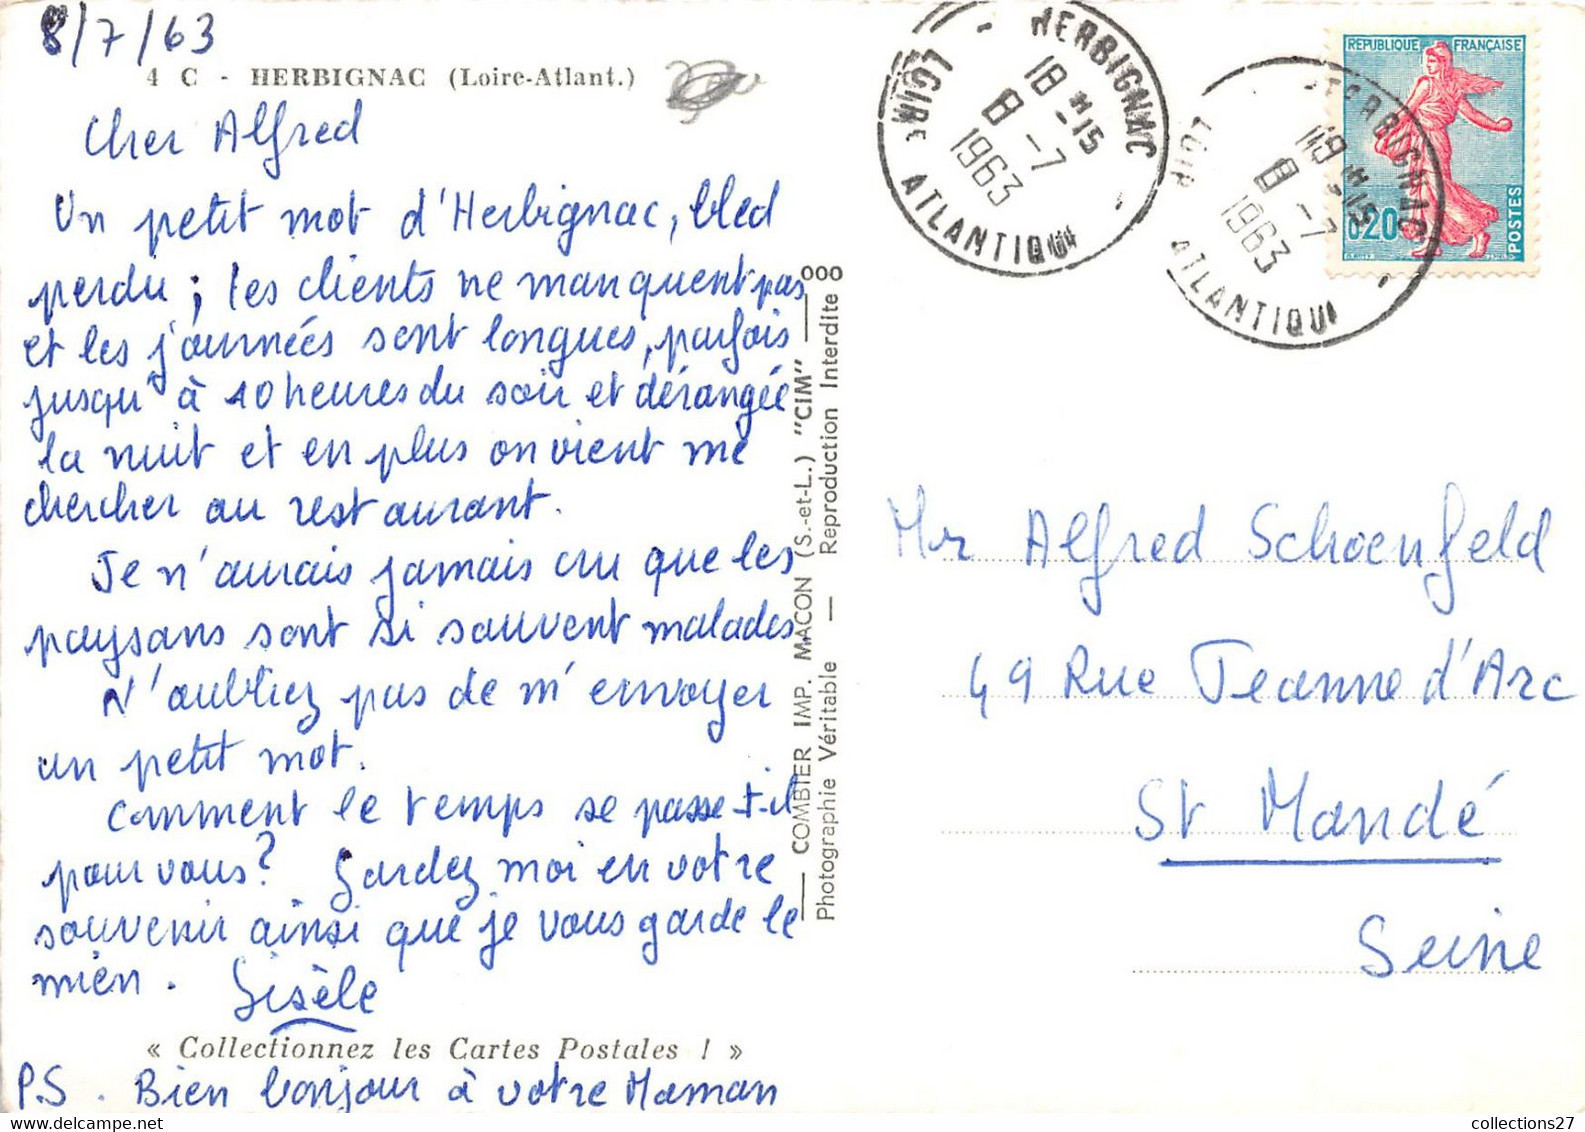 8/7/63
4 C - HERBIGNAC (Loire-Atlant.)
Cher Alfred
Un petit mot d'Herbignac, bled
perdu ; les clients ne manquent pas
et les journées sont longues, parfois
jusqu'à 10 heures du soir et dérangée
la nuit et en plus on vient me
chercher au restaurant.
Je n'aurais jamais cru que les
paysans sont si souvent malades
N'oubliez pas de m'envoyer
un petit mot.
Comment le temps se passe-t-il
pour vous? Gardez moi en votre
souvenir ainsi que je vous garde le
mien. Gisèle
« Collectionnez les Cartes Postales ! »
P.S. Bien bonjour à votre Maman
COMBIER IMP. MACON (S.-et-L.) "CIM" — OOO
Photographie Véritable — Reproduction Interdite
HERBIGNAC
18 H 15
8 -7
1963
LOIRE ATLANTIQUE
HERBIGNAC
19 H 15
8 -7
1963
LOIRE ATLANTIQUE
REPUBLIQUE FRANÇAISE
0,20
POSTES
Mr Alfred Schoenfeld
49 Rue Jeanne d'Arc
St Mandé
Seine
collections27